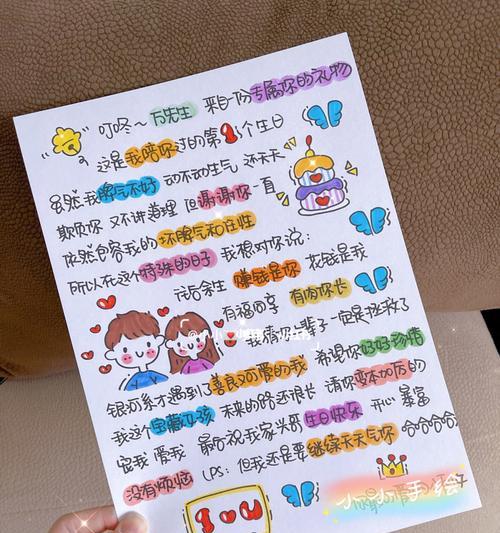 叮咚~ 万先生 来自一份专属你的礼物
这是我陪你过的第1个生日
虽然我脾气不好 动不动生气 还天天
欺负你 又不讲道理 但谢谢你一直
依然包容我的坏脾气和任性
所以在这个特殊的日子 我想对你说:
往后余生 赚钱是你 花钱是我
有福同享 有肉你长
猜上辈子一定是拯救了
银河系才遇到了善良可爱的我 希望你好好珍惜
我这个宝藏女孩 未来的路还很长 请你变本加厉的
宠我 爱我 最后祝我家 哥生日快乐 开心 暴富
没有烦恼 (PS: 但我还是要继续天天气你 哈哈哈哈
I U
小小手绘